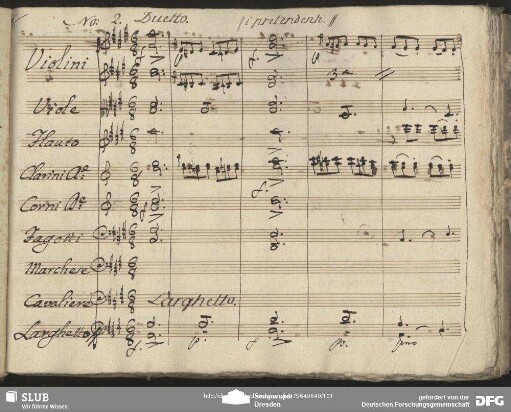 No: 2. Duetto. i pretendenti
Violini
Viole
Flauto
Clarini
Corni
Fagotti
Marchese
Cavaliere Larghetto.
Larghetto
SLUB
Wir führen Wissen.
Dresden
gefördert von der
Deutschen Forschungsgemeinschaft
DFG